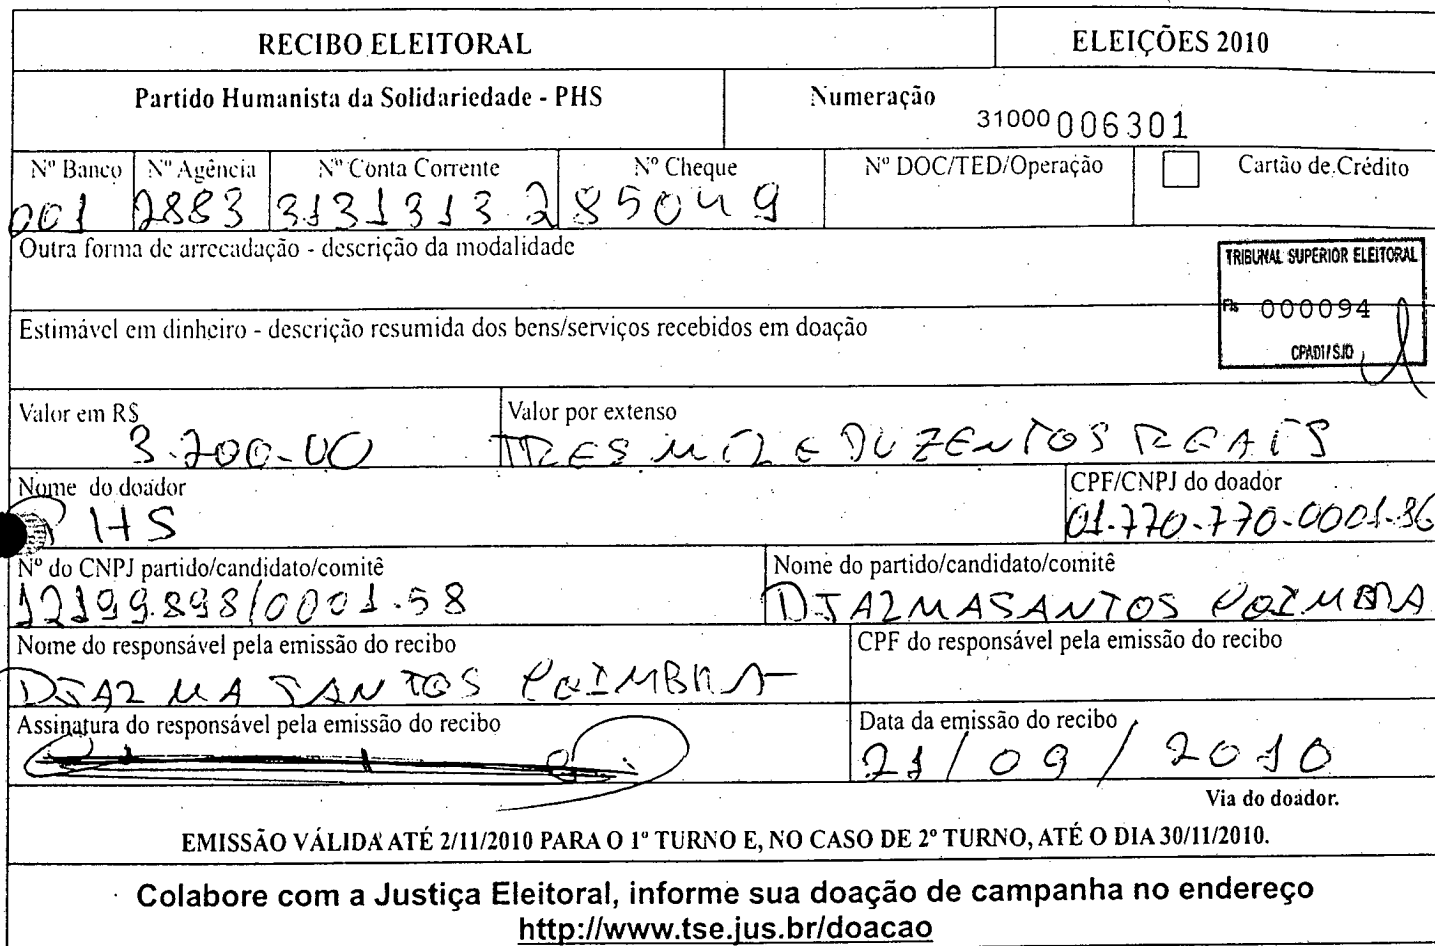 RECIBO ELEITORAL
ELEIÇÕES 2010
Partido Humanista da Solidariedade - PHS
Numeração
31000 006301
Nº Banco Nº Agência Nº Conta Corrente Nº Cheque Nº DOC/TED/Operação Cartão de Crédito
001 2883 3131313-2 85049
Outra forma de arrecadação - descrição da modalidade
TRIBUNAL SUPERIOR ELEITORAL
Fls 000094
CPADI/SJD
Estimável em dinheiro - descrição resumida dos bens/serviços recebidos em doação
Valor em R$ Valor por extenso
3.200-00 TRES MIL E DUZENTOS REAIS
Nome do doador CPF/CNPJ do doador
PHS 01.770-770-0001-36
Nº do CNPJ partido/candidato/comitê Nome do partido/candidato/comitê
12199.898/0001.58 DJALMA SANTOS COIMBRA
Nome do responsável pela emissão do recibo CPF do responsável pela emissão do recibo
DJALMA SANTOS COIMBRA
Assinatura do responsável pela emissão do recibo Data da emissão do recibo
21/09/2010
Via do doador.
EMISSÃO VÁLIDA ATÉ 2/11/2010 PARA O 1º TURNO E, NO CASO DE 2º TURNO, ATÉ O DIA 30/11/2010.
Colabore com a Justiça Eleitoral, informe sua doação de campanha no endereço
http://www.tse.jus.br/doacao